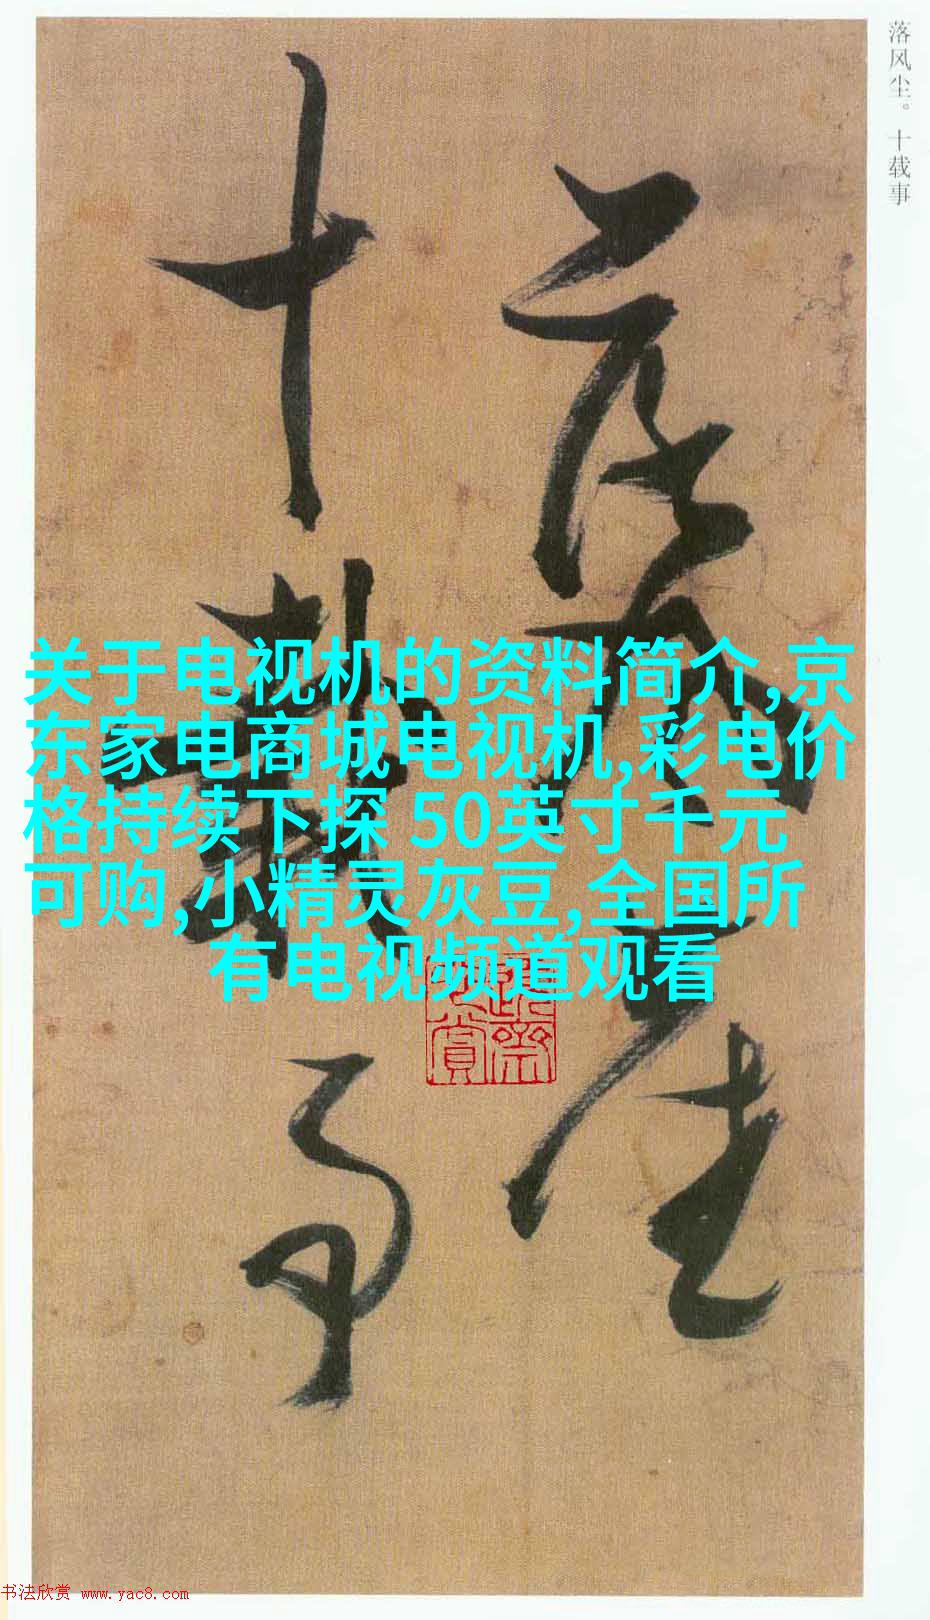 落风尘。十载事
关于电视机的资料简介,京
东家电商城电视机,彩电价
格持续下探 50英寸千元
可购,小精灵灰豆,全国所
有电视频道观看
十载事
书法欣赏 www.yac8.com